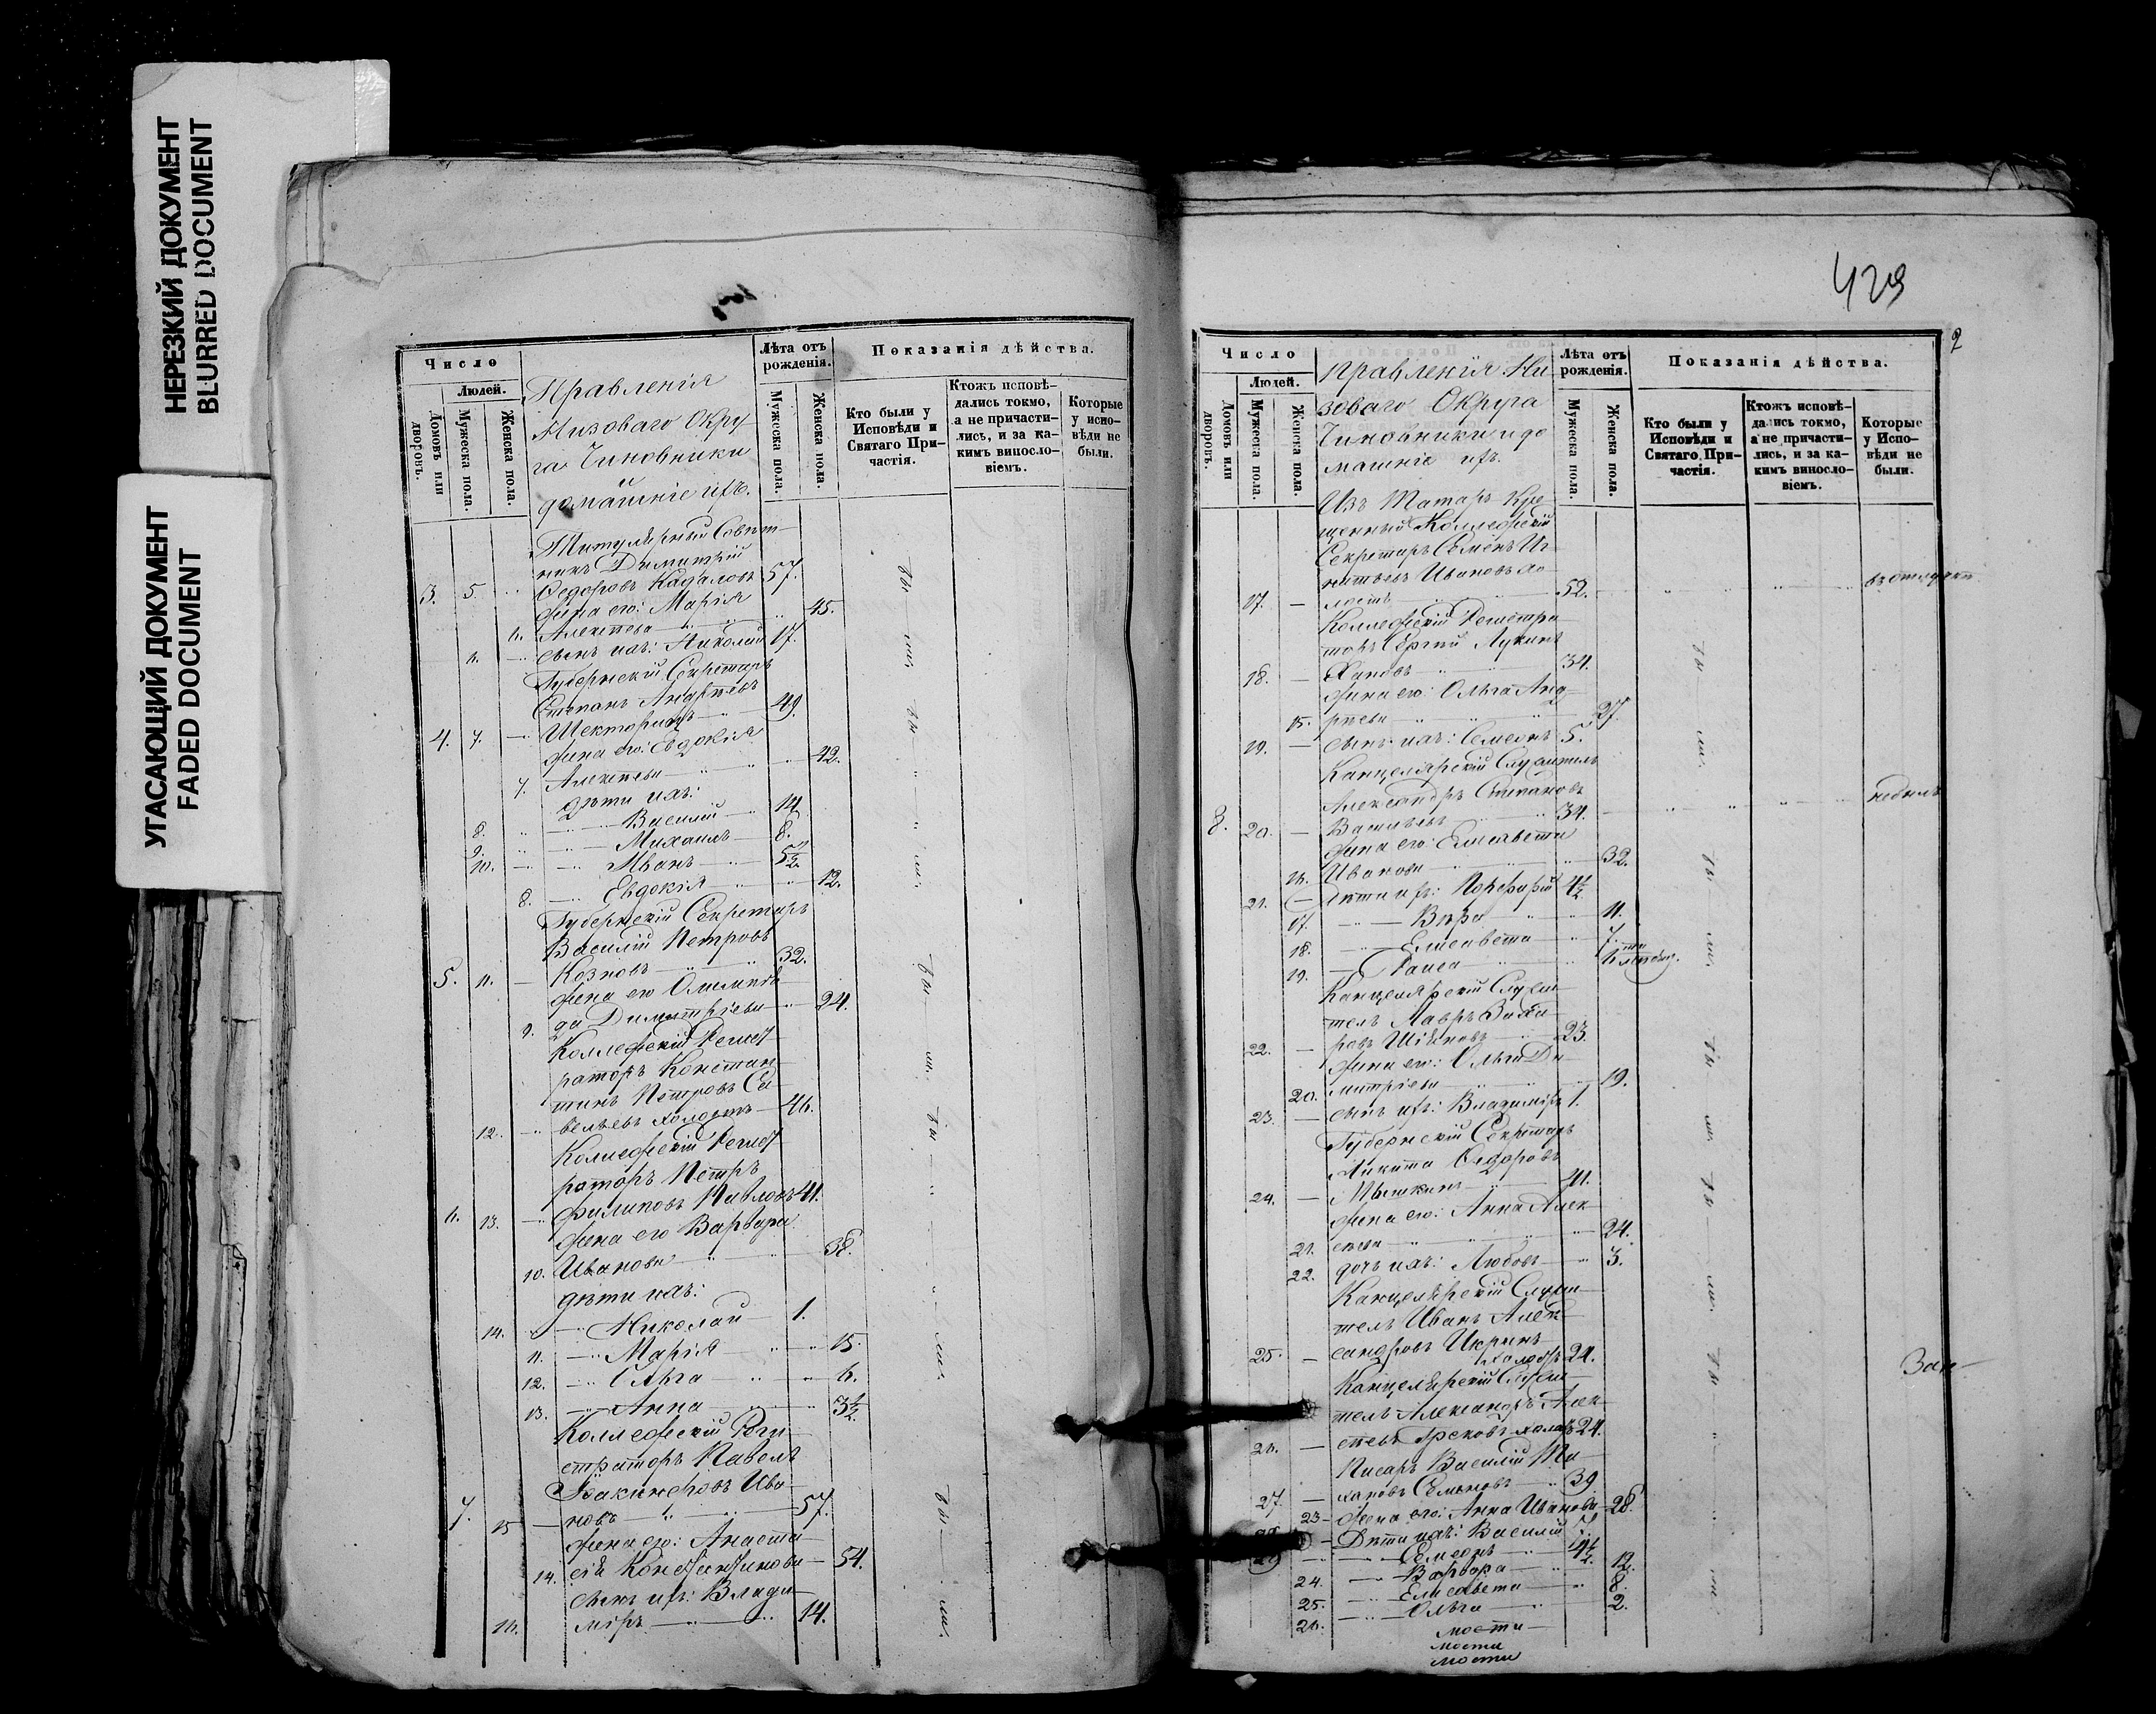 НЕРЕЗКИЙ ДОКУМЕНТ
BLURRED DOCUMENT
УГАСАЮЩИЙ ДОКУМЕНТ
FADED DOCUMENT
Число
Людей.
Домовъ или дворовъ.
Мужеска пола.
Женска пола.
Правленія
Низоваго Окру
га Чиновники
домашніе ихъ.
Лѣта отъ рожденія.
Мужеска пола.
Женска пола.
Показанія дѣйства.
Кто были у Исповѣди и Святаго Причастія.
Ктожъ исповѣдались токмо, а не причастились, и за какимъ винословіемъ.
Которые у исповѣди не были.
Титулярный Совѣт
никъ Димитрій
3. 5. Федоровъ 57.
жена его: Марія
6. Алексѣева 45.
6. сынъ ихъ: Николай 17.
Губернскій Секретарь
Степанъ Андреевъ
4. 7. 49.
жена его: Евдокія
7. Алексѣева 42.
дѣти ихъ:
8. Василій 14.
9. Михаилъ 8.
10. Иванъ 5½.
8. Евдокія 12.
Губернскій Секретарь
Василій Петровъ
5. 11. Козновъ 32.
жена его
9. да Димитріева 24.
Коллежскій Регист
раторъ Констан
тинъ Петровъ Са
12. вельевъ холостъ 46.
Коллежскій Регист
раторъ Петръ
6. 13. Филиповъ Павловъ 41.
жена его Варвара
10. Иванова 38.
дѣти ихъ:
14. Николай 1.
11. Марія 15.
12. Ольга 6.
13. Анна 3½.
Коллежскій Реги
страторъ Павелъ
Іакинфовъ Ива
7. 15 новъ 57.
жена его: Анаста
14. сія Константинова 54.
сынъ ихъ: Влади
16. міръ 14.
429
2
Число
Людей.
Домовъ или дворовъ.
Мужеска пола.
Женска пола.
Правленія Ни
зоваго Округа
Чиновники и до
машніе ихъ.
Лѣта отъ рожденія.
Мужеска пола.
Женска пола.
Показанія дѣйства.
Кто были у Исповѣди и Святаго Причастія.
Ктожъ исповѣдались токмо, а не причастились, и за какимъ винословіемъ.
Которые у Исповѣди не были.
Изъ Татаръ Кре
щенный Коллежскій
Секретарь Семенъ Иг
натьевъ Ивановъ хо
17. лостъ 52. въ отлучкѣ
Коллежскій Регистра
торъ Сергій Лукинъ
18. Хановъ 34.
жена его: Ольга Анд
15. реева 27.
19. сынъ ихъ: Семенъ 5.
Канцелярскій Служитель
Александръ Степановъ
8. 20. Васильевъ 34. небылъ
жена его: Елисавета
16. Иванова 32.
21. Дѣти ихъ: Порфирій 4½
17. Вѣра 11.
18. Елисавета 7.
19. Раиса
Канцелярскій Служи
тель Лавръ
22. 23.
жена его: Ольга Ди
20. митріева 19.
23. сынъ ихъ: Владиміръ 1.
Губернскій Секретарь
Никита Федоровъ
24. 41.
жена его: Анна Алек
21. сѣева 24.
22. дочь ихъ: Любовь 3.
Канцелярскій Служи
тель Иванъ Алек
25. сандровъ
холостъ 24.
Зап
Канцелярскій Служи
тель Александръ Алек
26. сѣевъ Грековъ холостъ 24.
Писарь Василій Ми
27. хаиловъ Семеновъ 39
23. жена его: Анна Иванова 28.
Дѣти ихъ: Василій 7.
29 Семенъ 4½.
24. Варвара 12.
25. Елисавета 8.
26. Ольга 2.
мости
мости
мости